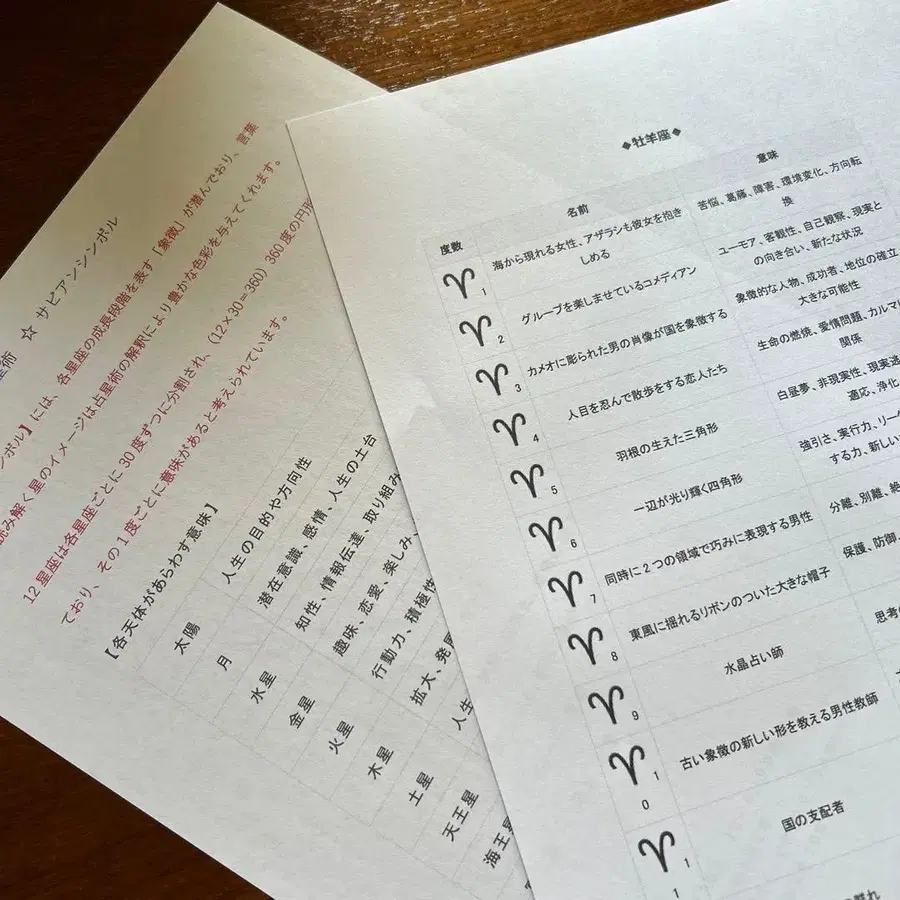 術 ☆ サビアンシンボル
ンボル】には、各星座の成長段階を表す「象徴」が潜んでおり、言葉
読み解く星のイメージは占星術の解釈により豊かな色彩を与えてくれます。
12星座は各星座ごとに30度ずつに分割され、(12×30=360) 360度の円形
ており、その1度ごとに意味があると考えられています。
【各天体があらわす意味】
太陽 人生の目的や方向性
月 潜在意識、感情、人生の土台
水星 知性、情報伝達、取り組み
金星 趣味、恋愛、楽しみ、
火星 行動力、積極性
木星 拡大、発展
土星 人生
天王星
海王星
◆牡羊座◆
度数 名前 意味
♈1 海から現れる女性、アザラシも彼女を抱き
しめる
苦悩、葛藤、障害、環境変化、方向転
換
♈2 グループを楽しませているコメディアン
ユーモア、客観性、自己観察、現実と
の向き合い、新たな状況
♈3 カメオに彫られた男の肖像が国を象徴する
象徴的な人物、成功者、地位の確立
大きな可能性
♈4 人目を忍んで散歩をする恋人たち
生命の燃焼、愛情問題、カルマ
関係
♈5 羽根の生えた三角形
白昼夢、非現実性、現実逃
適応、浄化
♈6 一辺が光り輝く四角形
強引さ、実行力、リー
する力、新しい
♈7 同時に2つの領域で巧みに表現する男性
分離、別離、
♈8 東風に揺れるリボンのついた大きな帽子
保護、防御、
♈9 水晶占い師
思考の
♈1
0 古い象徴の新しい形を教える男性教師
♈1
1 国の支配者